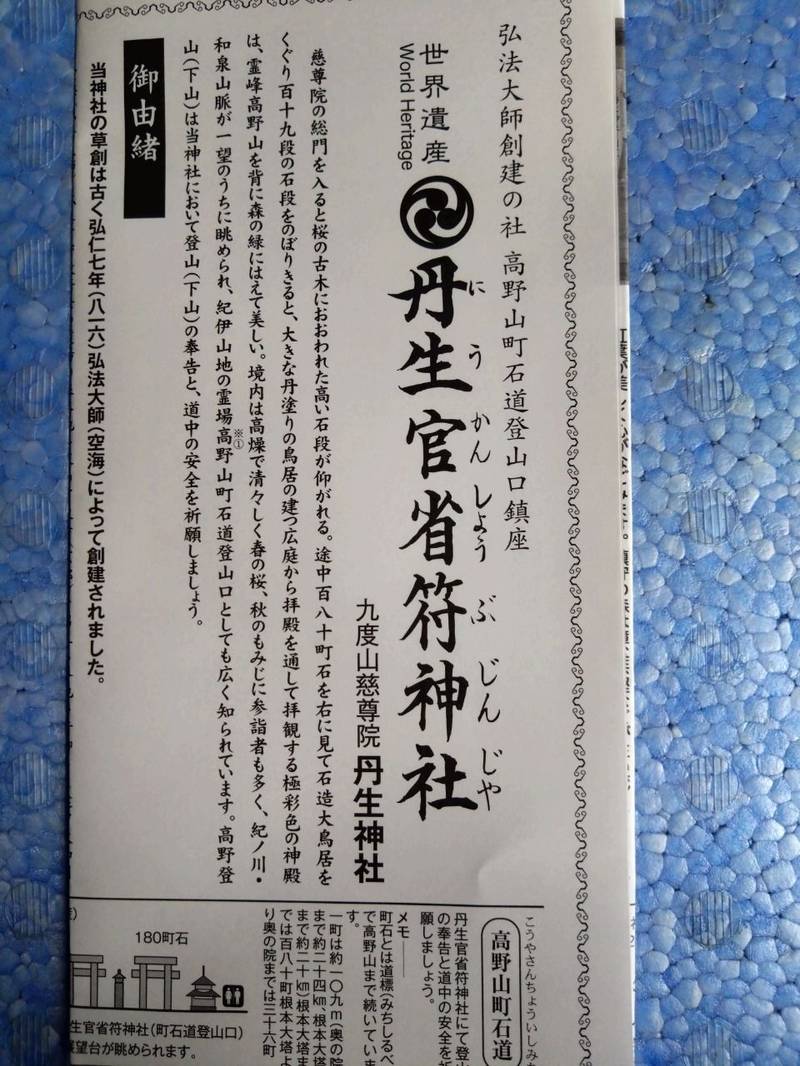 弘法大師創建の社 高野山町石道登山口鎮座
世界遺産
World Heritage
丹生官省符神社
にうかんしょうぶじんじゃ
九度山慈尊院 丹生神社
慈尊院の総門を入ると桜の古木におおわれた高い石段が仰がれる。途中百八十町石を右に見て石造大鳥居を
くぐり百十九段の石段をのぼりきると、大きな丹塗りの鳥居の建つ広庭から拝殿を通して拝観する極彩色の神殿
は、霊峰高野山を背に森の緑にはえて美しい。境内は高燥で清々しく春の桜、秋のもみじに参詣者も多く、紀ノ川・
和泉山脈が一望のうちに眺められ、紀伊山地の霊場高野山町石道登山口としても広く知られています。高野登
※①
山(下山)は当神社において登山(下山)の奉告と、道中の安全を祈願しましょう。
御由緒
当神社の草創は古く弘仁七年(八一六)弘法大師(空海)によって創建されました。
こうやさんちょういしみち
高野山町石道
丹生官省符神社にて登山
の奉告と道中の安全を祈
願しましょう。
メモ
町石とは道標(みちしるべ)
で高野山まで続いていま
す。
一町は約一〇九m(奥の院
まで約二十四km、根本大塔
まで約二十km)根本大塔ま
では百八十町根本大塔よ
り奥の院までは三十六町
180町石
生官省符神社(町石道登山口)
展望台が眺められます。